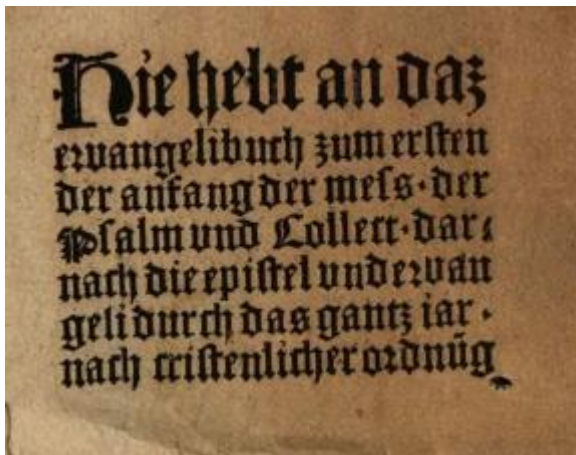 Hie hebt an daz
ewangelibuch zum ersten
der anfang der mess·der
Psalm vnd Collect·dar⸗
nach die epistel vnd ewan
geli durch das gantz iar·
nach cristenlicher ordnūg